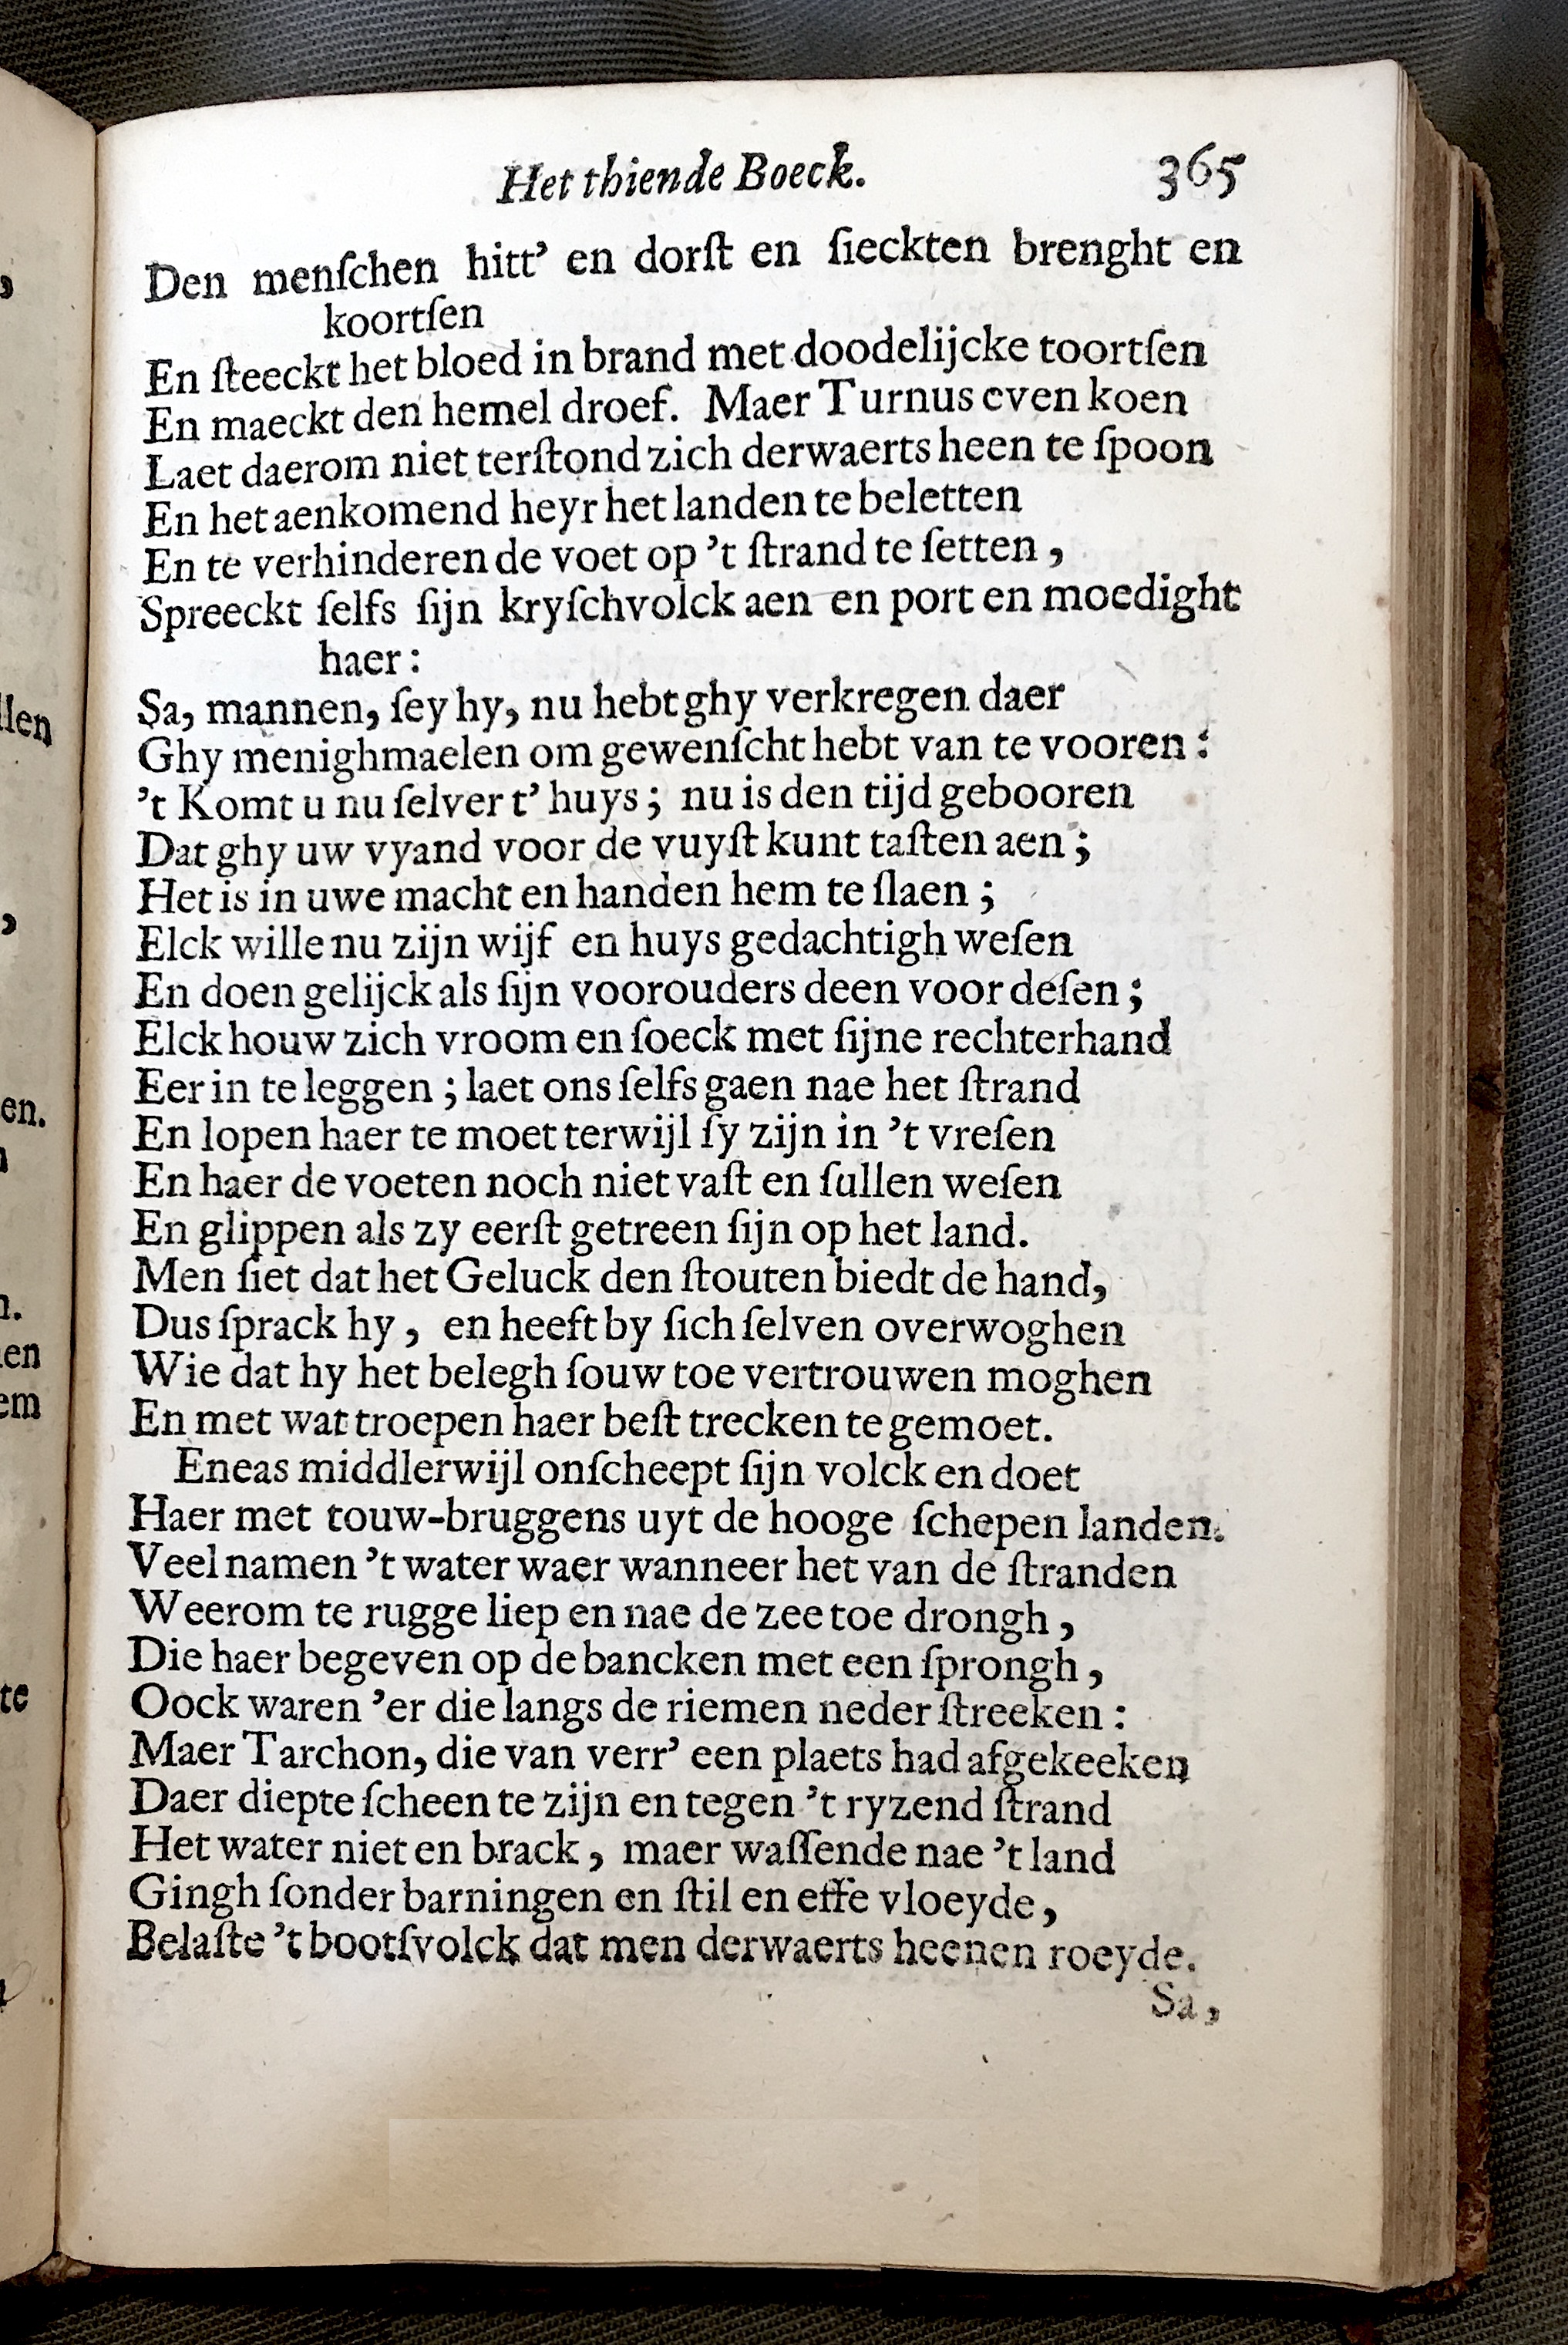 Het thiende Boeck. 365
Den menſchen hitt’ en dorſt en ſieckten brenght en
koortſen
En ſteeckt het bloed in brand met doodelijcke toortſen
En maeckt den hemel droef. Maer Turnus even koen
Laet daerom niet terſtond zich derwaerts heen te ſpoon
En het aenkomend heyr het landen te beletten
En te verhinderen de voet op ’t ſtrand te ſetten,
Spreeckt ſelfs ſijn kryſchvolck aen en port en moedight
haer:
Sa, mannen, ſey hy, nu hebt ghy verkregen daer
Ghy menighmaelen om gewenſcht hebt van te vooren:
’t Komt u nu ſelver t’ huys; nu is den tijd gebooren
Dat ghy uw vyand voor de vuyſt kunt taſten aen;
Het is in uwe macht en handen hem te ſlaen;
Elck wille nu zijn wijf en huys gedachtigh weſen
En doen gelijck als ſijn voorouders deen voor deſen;
Elck houw zich vroom en ſoeck met ſijne rechterhand
Eer in te leggen; laet ons ſelfs gaen nae het ſtrand
En lopen haer te moet terwijl ſy zijn in ’t vreſen
En haer de voeten noch niet vaſt en ſullen weſen
En glippen als zy eerſt getreen ſijn op het land.
Men ſiet dat het Geluck den ſtouten biedt de hand,
Dus ſprack hy, en heeft by ſich ſelven overwoghen
Wie dat hy het belegh ſouw toe vertrouwen moghen
En met wat troepen haer beſt trecken te gemoet.
Eneas middlerwijl onſcheept ſijn volck en doet
Haer met touw-bruggens uyt de hooge ſchepen landen.
Veel namen ’t water waer wanneer het van de ſtranden
Weerom te rugge liep en nae de zee toe drongh,
Die haer begeven op de bancken met een ſprongh,
Oock waren ’er die langs de riemen neder ſtreeken:
Maer Tarchon, die van verr’ een plaets had afgekeeken
Daer diepte ſcheen te zijn en tegen ’t ryzend ſtrand
Het water niet en brack, maer waſſende nae ’t land
Gingh ſonder barningen en ſtil en effe vloeyde,
Belaſte ’t bootſvolck dat men derwaerts heenen roeyde.
Sa,